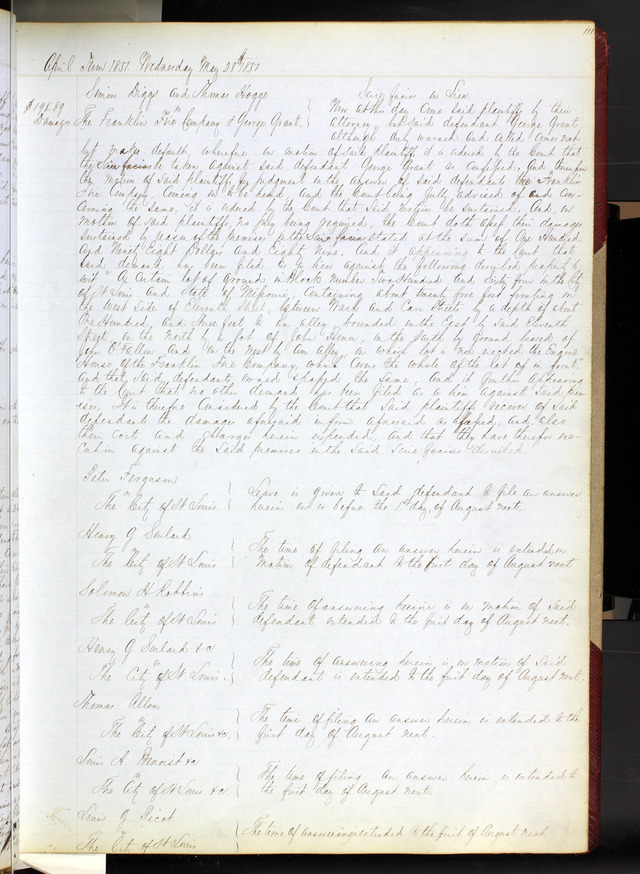 111
April Term 1857 Wednesday May 20th 1857
Simeon Diggs and Thomas Hogge
Scire facias on Lien
$198.89
Damages
vs
The Franklin Fire Company & George Grant
Now at this day come said plaintiffs by their
attorney but said defendant George Grant
although duly warned and called comes not
but makes default, wherefore on motion of said plaintiffs it is ordered by the Court that
the Scire facias be taken against said defendant George Grant as confessed, and thereupon
the motion of said plaintiffs for judgment on the answer of said defendants the Franklin
Fire Company coming on to be heard and the Court being fully advised of and con-
cerning the same, it is ordered by the Court that said motion be sustained. And, on
motion of said plaintiffs, no jury being required, the Court doth assess their damages
sustained by reason of the premises in the Scire facias stated at the sum of One Hundred
and Ninety Eight Dollars and Eighty Nine. And it appearing to the Court that
said demand has been filed as a lien against the following described property to
wit "A certain lot of ground in Block number Two Hundred and Sixty four in the City
of St Louis and State of Missouri, containing about twenty five feet fronting on
the West side of Eleventh Street, between Wash and Carr Streets by a depth of about
One Hundred, and three feet, to an alley, bounded on the East by said Eleventh
Street, on the North by a lot of John Henry, on the South by ground leased of
John O'Fallon and on the West by an Alley, on which lot is now erected the Engine
House of the Franklin Fire Company, which covers the whole of the lot of in front,"
and that said defendant owned possessed the same, and it further appearing
to the Court that no other demand has been filed as a lien against said prem-
ises, It is therefore considered by the Court that said plaintiffs recover of said
defendants the damages aforesaid in form aforesaid assessed, and also
their costs and charges herein expended, and that they have therefor exe-
cution against the said premises in the said Scire facias described.
Peter Ferguson
vs
The City of St Louis
Leave is given to said defendant to file an answer
herein on or before the 1st day of August next.
Henry G Soulard
vs
The City of St Louis
The time of filing an answer herein is extended on
motion of defendant to the first day of August next
Solomon H Robbins
vs
The City of St Louis
The time of answering herein is on motion of said
defendant extended to the first day of August next.
Henry G Soulard &c
vs
The City of St Louis.
The time of answering herein is, on motion of said
defendant is extended to the first day of August next.
Thomas Allen
vs
The City of St Louis &c.
The time of filing an answer herein is extended to the
first day of August next.
Louis A Benoist &c
vs
The City of St Louis &c
The time of filing an answer herein is extended to
the first day of August next.
Louis G Picot
vs
The City of St Louis
The time of answering extended to the first of August next.